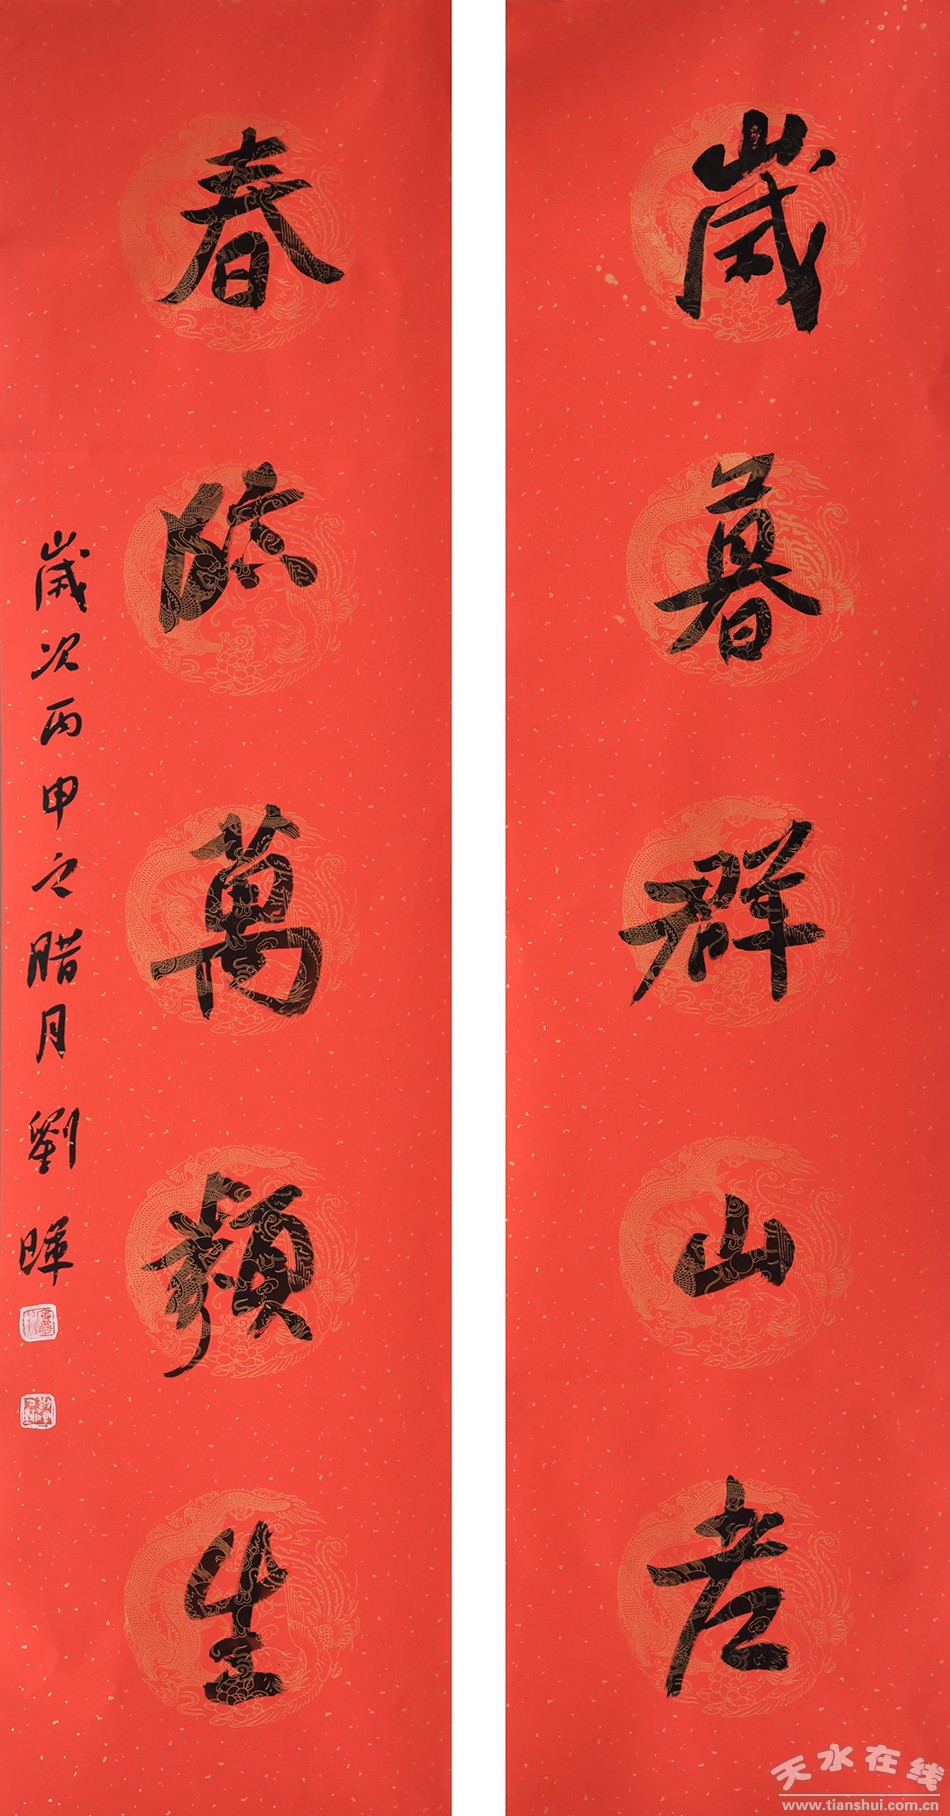 歲暮群山老
春臨萬類生
歲次丙申之腊月劉暉
天水在线
www.tianshui.com.cn